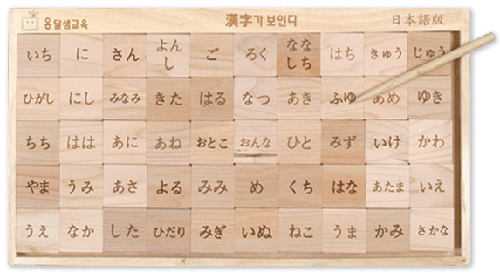 옹달샘교육 漢字가보인다 日本語版
いち に さん よんし ご ろく ななしち はち きゅう じゅう
ひがし にし みなみ きた はる なつ あき ふゆ あめ ゆき
ちち はは あに あね おとこ おんな ひと みず いけ かわ
やま うみ あさ よる みみ め くち はな あたま いえ
うえ なか した ひだり みぎ いぬ ねこ うま かみ さかな